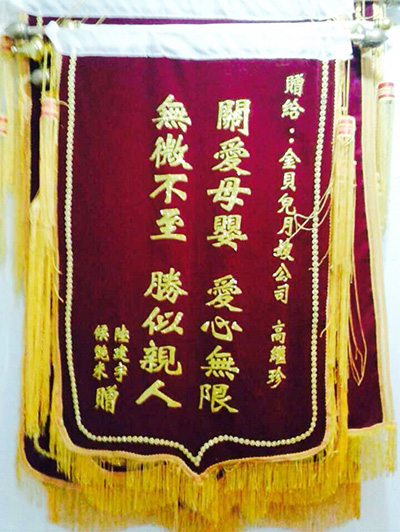 贈給：金貝兒月嫂公司 高耀珍
關愛母嬰 愛心無限
無微不至 勝似親人
陸建宇
候 米
贈